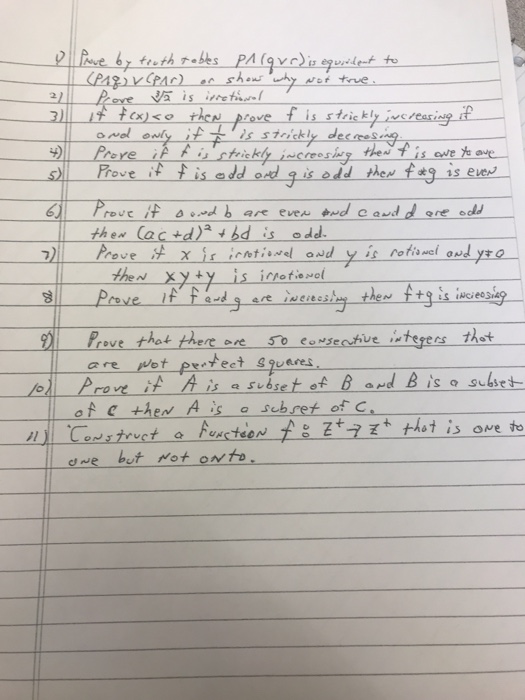 1) Prove by truth tables P∧(q∨r) is equivalent to
(P∧q)∨(P∧r) or show why not true.
2) Prove ∛2 is irrational
3) if f(x)<0 then prove f is strickly increasing if
and only if 1/f is strickly decreasing.
4) Prove if f is strickly increasing then f is one to one
5) Prove if f is odd and g is odd then f*g is even
6) Prove if a and b are even and c and d are odd
then (ac+d)² + bd is odd.
7) Prove if x is irrational and y is rational and y≠0
then xy+y is irrational
8 Prove if f and g are increasing then f+g is increasing
9) Prove that there are 50 consecutive integers that
are not perfect squares.
10) Prove if A is a subset of B and B is a subset
of C then A is a subset of C.
11) Construct a function f: Z⁺→Z⁺ that is one to
one but not onto.